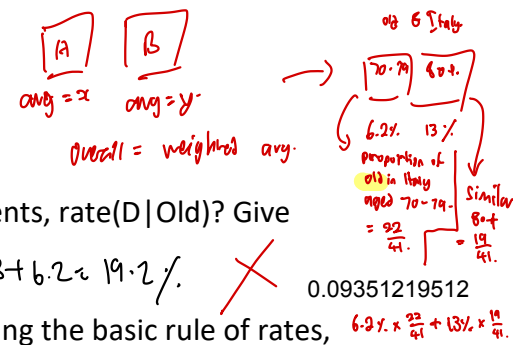 A
B
avg = x
avg = y.
Overall = weighted avg.
old & Italy
70-79
80+.
6.2%
13%
proportion of
old in Italy
aged 70-79.
= 22/41.
Similar
80+
= 19/41.
ents, rate(D|Old)? Give
3+6.2 = 19.2%.
0.09351219512
ng the basic rule of rates,
6.2% × 22/41 + 13% × 19/41.